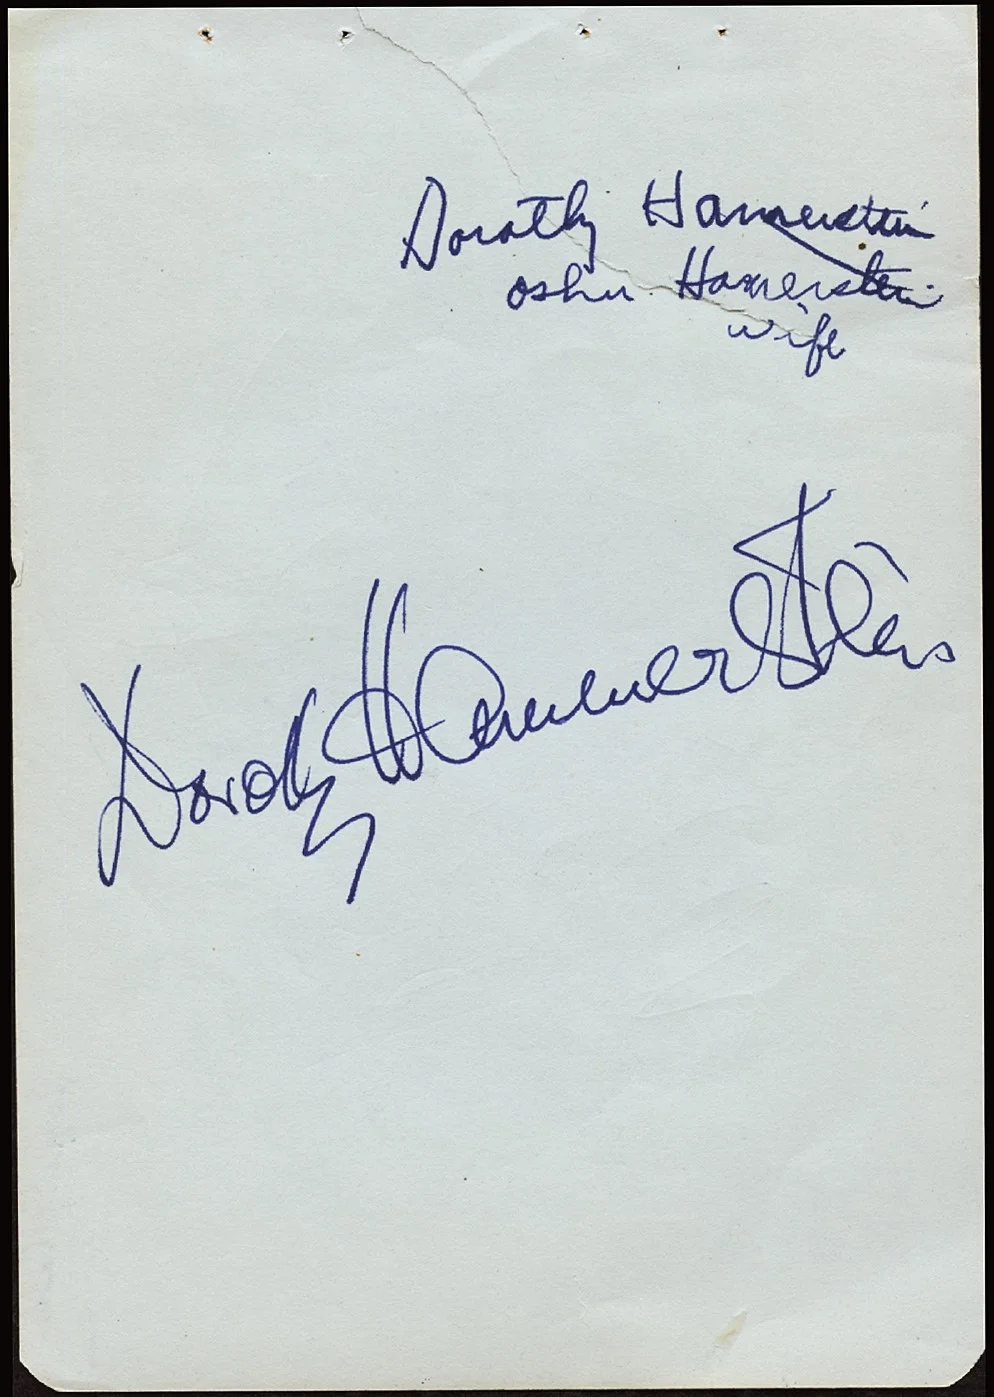 Dorothy Hamerstein
oshir Hamerstein
wife
Dorothy Hammerstein